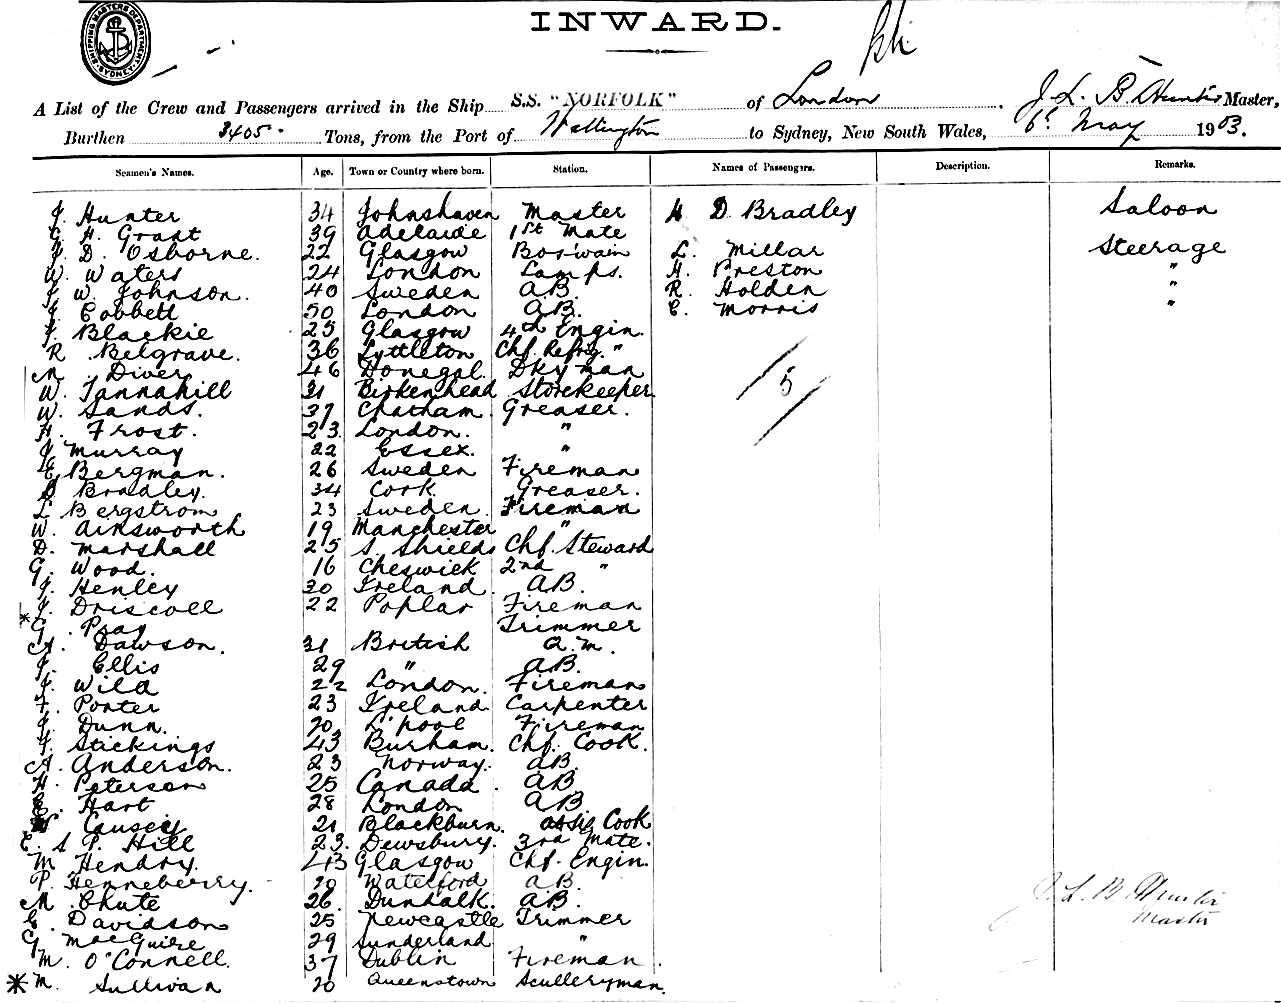 INWARD.
SHIPPING MASTERS DEPARTMENT. SYDNEY.
A List of the Crew and Passengers arrived in the Ship S.S. "NORFOLK" of London. J. L. B. Hunter Master,
Burthen 3405 Tons, from the Port of Wellington to Sydney, New South Wales, 6th May 1903.
Seamen's Names. Age. Town or Country where born. Station. Names of Passengers. Description. Remarks.
J. Hunter 34 Johnshaven Master H D. Bradley Saloon
C. H. Grant 39 Adelaide 1st Mate
J. D. Osborne. 22 Glasgow Bos'wain L. Millar Steerage
W. Waters 24 London Lamps. H. Preston "
J. W. Johnson. 40 Sweden A.B. R. Holden "
J. Cobbett 50 London A.B. C. Morris "
J. Blackie 25 Glasgow 4th Engin.
R Belgrave. 36 Lyttleton Chf. Refrig. "
M. Diver 46 Donegal. Dkyman 5
W. Tannahill 31 Birkenhead Storekeeper
W. Sands. 37 Chatham. Greaser.
H. Frost. 23. London. "
J. Murray 22 Essex. "
E. Bergman. 26 Sweden Fireman
Bradley. 34 Cork. Greaser.
L Bergstrom 23 Sweden. Fireman
W. Ainsworth 19 Manchester "
D. Marshall 25 S. Shields Chf. Steward
G. Wood. 16 Cheswick 2nd "
J. Henley 30 Ireland. A.B.
J. Driscoll 22 Poplar Fireman
* G. Pray Trimmer
A. Dawson. 31 British A.M.
J. Ellis 29 " A.B.
J. Wild 22 London. Fireman
F. Porter 23 Ireland Carpenter
J. Dunn. 20 L'pool Fireman
F. Stickings 43 Burham. Chf. Cook.
A. Anderson. 23 Norway. A.B.
H. Peterson 25 Canada. A.B.
E. Hart 28 London A.B.
Causey 21 Blackburn. Asst Cook
E. S. P. Hill 23. Dewsbury. 3rd Mate.
M Hendry. 43 Glasgow Chf. Engin.
P. Henneberry. 20 Waterford A.B.
M. Chute 26. Dundalk. A.B. J. L. B Hunter
E. Davidson 25 Newcastle Trimmer Master
G MacGuire 29 Sunderland "
M. O'Connell. 37 Dublin Fireman.
* M. Sullivan 20 Queenstown Sculleryman.